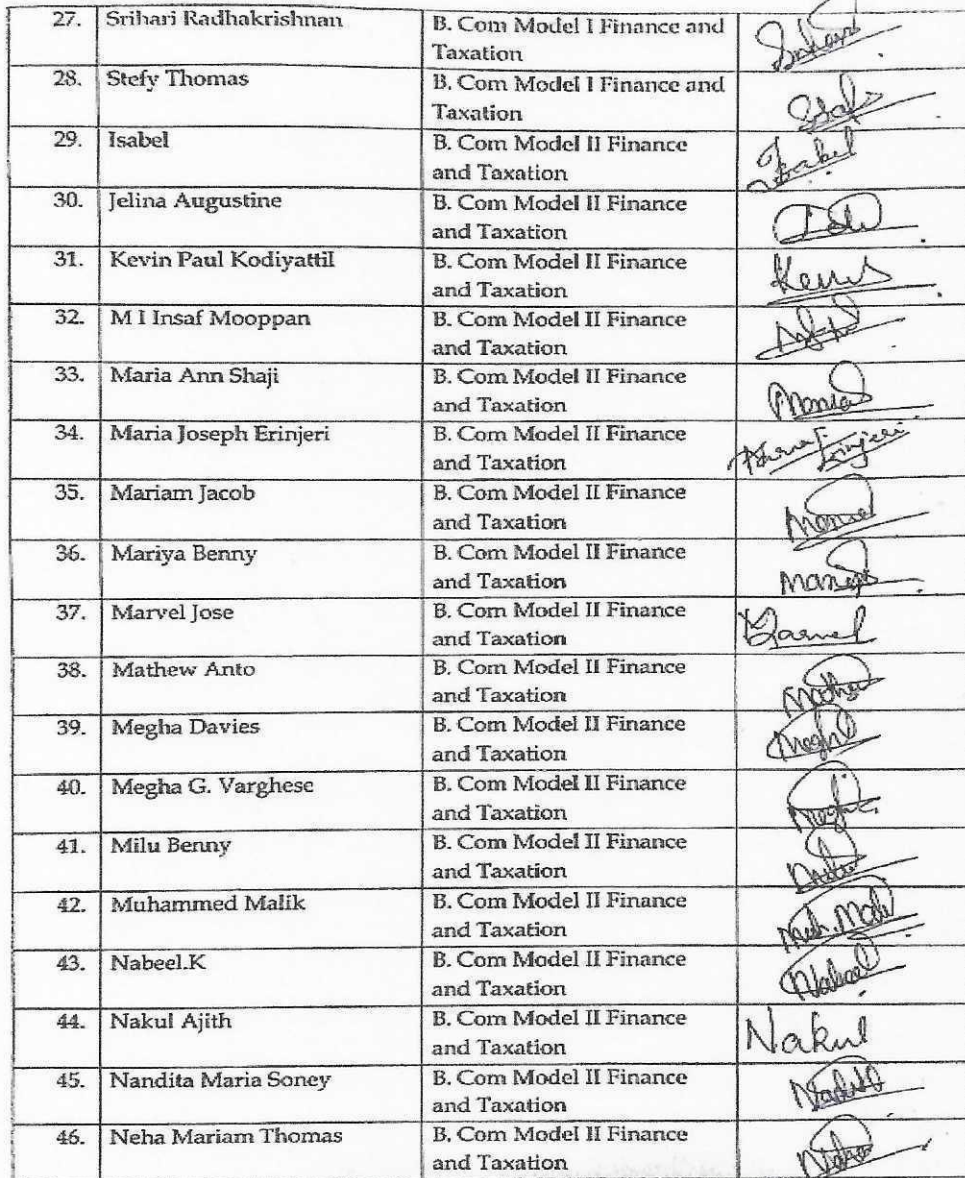 27. Srihari Radhakrishnan B. Com Model I Finance and
Taxation
28. Stefy Thomas B. Com Model I Finance and
Taxation
29. Isabel B. Com Model II Finance
and Taxation
Isabel
30. Jelina Augustine B. Com Model II Finance
and Taxation
31. Kevin Paul Kodiyattil B. Com Model II Finance
and Taxation
32. M I Insaf Mooppan B. Com Model II Finance
and Taxation
33. Maria Ann Shaji B. Com Model II Finance
and Taxation
34. Maria Joseph Erinjeri B. Com Model II Finance
and Taxation
35. Mariam Jacob B. Com Model II Finance
and Taxation
36. Mariya Benny B. Com Model II Finance
and Taxation
37. Marvel Jose B. Com Model II Finance
and Taxation
38. Mathew Anto B. Com Model II Finance
and Taxation
39. Megha Davies B. Com Model II Finance
and Taxation
40. Megha G. Varghese B. Com Model II Finance
and Taxation
41. Milu Benny B. Com Model II Finance
and Taxation
42. Muhammed Malik B. Com Model II Finance
and Taxation
43. Nabeel.K B. Com Model II Finance
and Taxation
44. Nakul Ajith B. Com Model II Finance
and Taxation
Nakul
45. Nandita Maria Soney B. Com Model II Finance
and Taxation
46. Neha Mariam Thomas B. Com Model II Finance
and Taxation